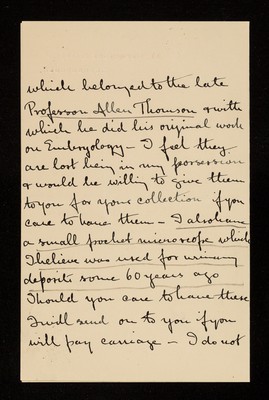 which belonged to the late
Professor Allen Thomson & with
which he did his original work
on Embryology – I feel they
are lost being in my possession
& would be willing to give them
to you for your collection if you
care to have them – I also have
a small pocket microscope which
I believe was used for urinary
deposits some 60 years ago
Should you care to have these
I will send on to you if you
will pay carriage – I do not